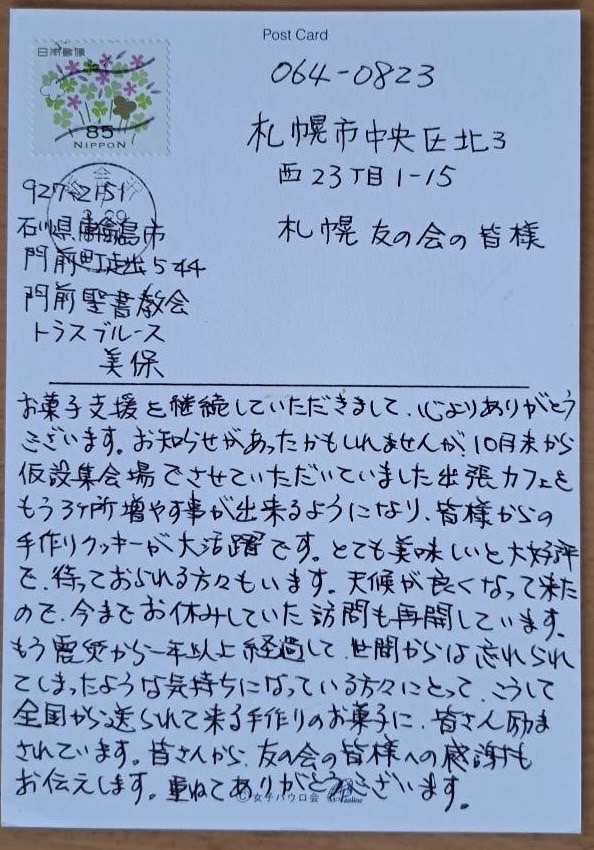 Post Card
日本郵便
85
NIPPON
064-0823
札幌市中央区北3
西23丁目1-15
札幌友の会の皆様
927-2151
石川県輪島市
門前町走出5-44
門前聖書教会
トラスブルース
美保
お菓子支援を継続していただきまして、心よりありがとう
ございます。お知らせがあったかもしれませんが、10月末から
仮設集会場でさせていただいていました出張カフェを
もう3ヶ所増やす事が出来るようになり、皆様からの
手作りクッキーが大活躍です。とても美味しいと大好評
で、待っておられる方々もいます。天候が良くなって来た
ので、今までお休みしていた訪問も再開しています。
もう震災から一年以上経過して、世間からは忘れられ
てしまったような気持ちになっている方々にとって、こうして
全国から送られて来る手作りのお菓子に、皆さん励ま
されています。皆さんから、友の会の皆様への感謝も
お伝えします。重ねてありがとうございます。
©女子パウロ会